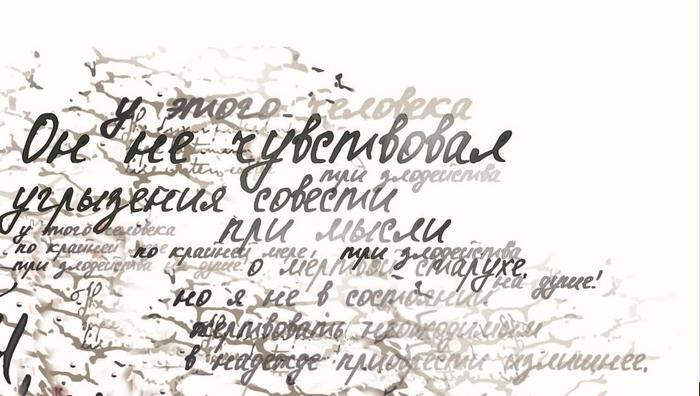 у этого человека
Он не чувствовал
при злодейства
угрызения совести
у этого человека
при мысли
по крайней мере
по крайней мере, три злодейства
три злодейства на душе!
о мёртвой старухе.
на душе!
но я не в состоянии
жертвовать необходимым
в надежде приобрести излишнее.